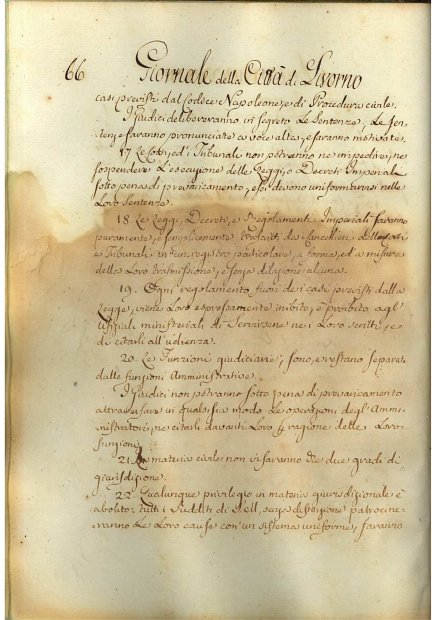 66 Giornale della Città di Livorno
casi previsti dal Codice Napoleone, e di Procedura civile.
I Giudici delibereranno in segreto Le Sentenze, Le Sen-
tenze saranno pronunciate a voce alta, e saranno motivate.
17 Le Corti, ed i Tribunali non potranno ne impedire, ne
sospendere L'esecuzione delle Leggi, o Decreti Imperiali
sotto pena di prevaricamento, e si devono uniformarsi nelle
Loro Sentenze.
18 Le Leggi, Decreti, e Regolamenti Imperiali saranno
puramente, e semplicemente trascritti da Cancellieri delle Corti
e Tribunali in un registro particolare, a forma, ed a misura
della Loro trasmissione, e senza dilazione alcuna.
19. Ogni regolamento fuori dei casi previsti dalla
Legge, viene Loro espressamente inibito, e proibito agl'
Ufiziali ministeriali di Servirsene nei Loro scritti, e
di citarli all'udienza.
20. Le Funzioni giudiciarie, sono, e restano separate
dalle funzioni Amministrative.
I Giudici non potranno sotto pena di prevaricamento
attraversare in qualsisia modo Le operazioni degl'Ammi-
nistratori, ne citarli davanti Loro ragione delle Loro
funzioni.
21. In materia civile non vi saranno che due gradi di
giurisdizione.
22. Qualunque privilegio in materia giurisdizionale è
abolito: tutti i Sudditi di senza distinzione patrocine-
ranno Le Loro cause con un sistema uniforme, saranno